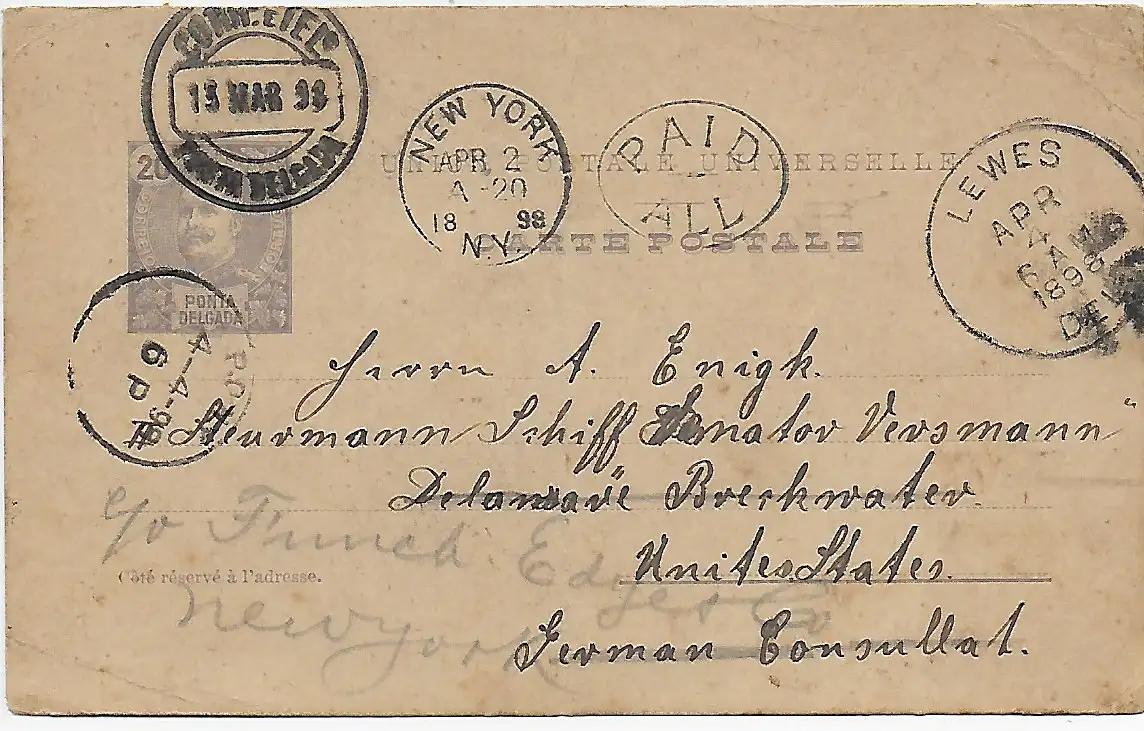 CORR. E TELS
15 MAR 98
PONTA DELGADA
NEW YORK
APR 2
A -20
18 98
N.Y.
PAID
ALL
LEWES
APR
4
6 AM
1898
DEL.
UNION POSTALE UNIVERSELLE
CARTE POSTALE
20
PONTA
DELGADA
P.O.
4-4-98
6 P
Herrn A. Enigk.
Steurmann Schiff Senator Versmann"
Delaware Breckwater.
c/o Funch Edye & Co
United States.
Côté réservé à l'adresse.
New York
German Consullat.